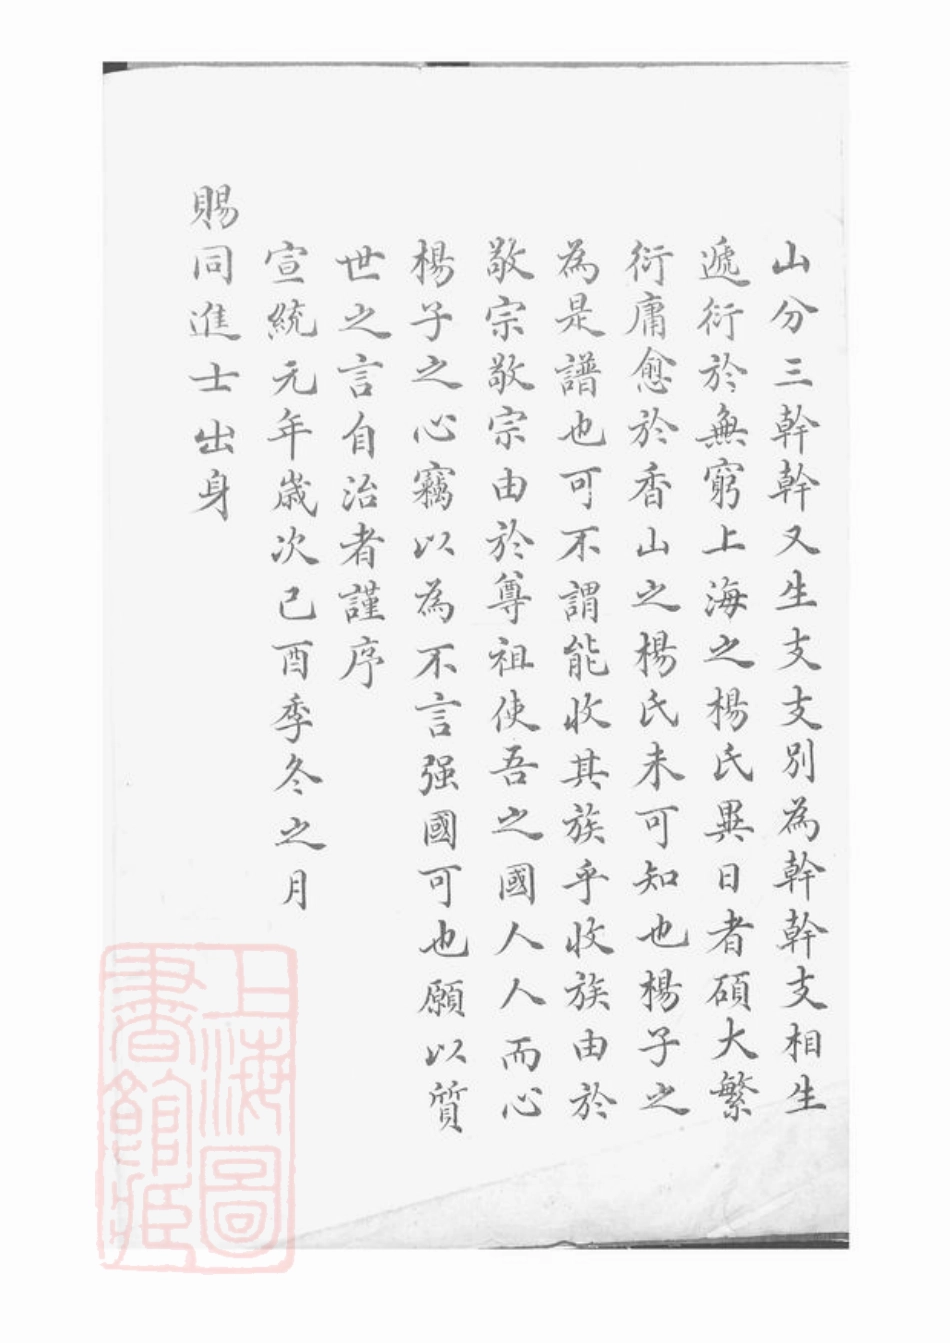 山分三幹幹又生支支別為幹幹支相生
遞衍於無窮上海之楊氏異日者碩大繁
衍庸愈於香山之楊氏未可知也楊子之
為是譜也可不謂能收其族乎收族由於
敬宗敬宗由於尊祖使吾之國人人而心
楊子之心竊以為不言强國可也願以質
世之言自治者謹序
宣統元年歲次己酉季冬之月
賜同進士出身
上海圖
書館藏